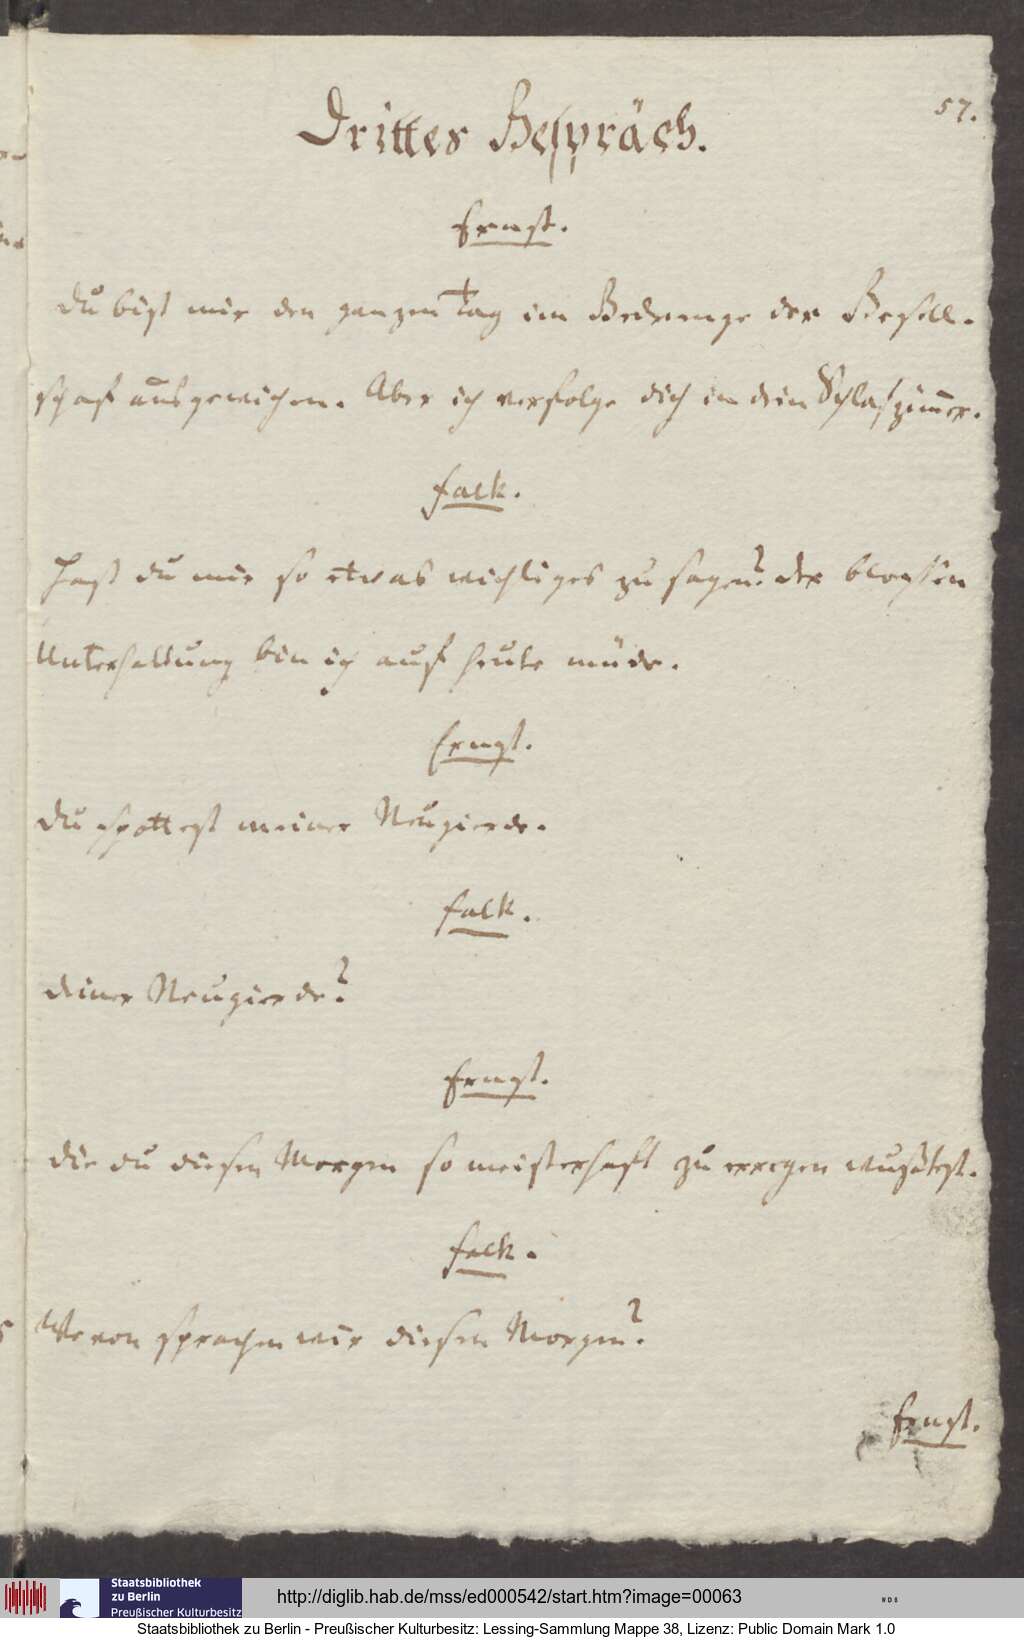 57.
Drittes Gespräch.
Ernst.
Du bist mir den ganzen Tag im Gedrenge der Gesell-
schaf ausgewichen. Aber ich verfolge dich in dein Schlafzimmer.
Falk.
Hast du mir so etwas wichtiges zu sagen? der blossen
Unterhaltung bin ich auf heute müde.
Ernst.
Du spottest meiner Neugierde.
Falk.
deiner Neugierde?
Ernst.
die du diesen Morgen so meisterhaft zu erregen wustest.
Falk.
Wovon sprachen wir diesen Morgen?
Ernst.
Staatsbibliothek
zu Berlin
Preußischer Kulturbesitz
http://diglib.hab.de/mss/ed000542/start.htm?image=00063
WDB
Staatsbibliothek zu Berlin - Preußischer Kulturbesitz: Lessing-Sammlung Mappe 38, Lizenz: Public Domain Mark 1.0